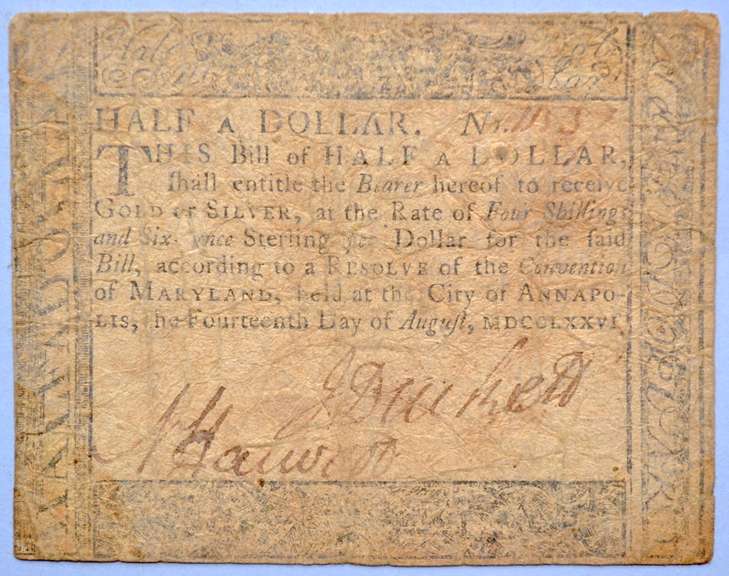 Half a Dol
lar
HALF A DOLLAR. No.
THIS Bill of HALF A DOLLAR,
ſhall entitle the Bearer hereof to receive
GOLD or SILVER, at the Rate of Four Shillings
and Six-pence Sterling per Dollar for the ſaid
Bill, according to a RESOLVE of the Convention
of MARYLAND, held at the City of ANNAPO-
LIS, the Fourteenth Day of Auguſt, MDCCLXXVI.
J Duckett
N Harwood